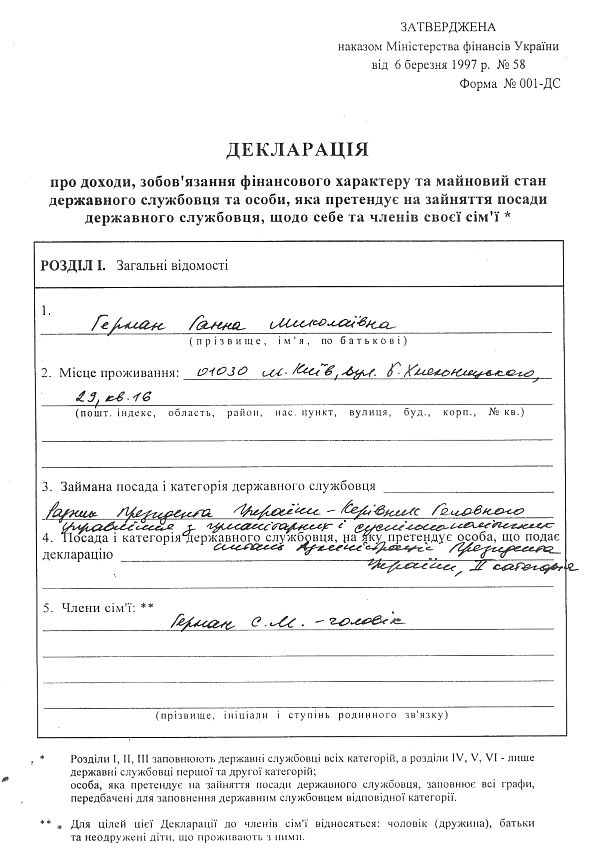 ЗАТВЕРДЖЕНА
наказом Міністерства фінансів України
від 6 березня 1997 р. № 58
Форма № 001-ДС
ДЕКЛАРАЦІЯ
про доходи, зобов'язання фінансового характеру та майновий стан
державного службовця та особи, яка претендує на зайняття посади
державного службовця, щодо себе та членів своєї сім'ї *
РОЗДІЛ I. Загальні відомості
1.
Герман Ганна Миколаївна
(прізвище, ім'я, по батькові)
2. Місце проживання: 01030 м. Київ, вул. Б. Хмельницького,
29, кв. 16
(пошт. індекс, область, район, нас. пункт, вулиця, буд., корп., № кв.)
3. Займана посада і категорія державного службовця
Радник Президента України - Керівник Головного
управління з гуманітарних і суспільно-політичних
4. Посада і категорія державного службовця, на яку претендує особа, що подає
декларацію питань Адміністрації Президента
України, II категорія
5. Члени сім'ї: **
Герман С.М. - чоловік
(прізвище, ініціали і ступінь родинного зв'язку)
* Розділи I, II, III заповнюють державні службовці всіх категорій, а розділи IV, V, VI - лише
державні службовці першої та другої категорій;
особа, яка претендує на зайняття посади державного службовця, заповнює всі графи,
передбачені для заповнення державним службовцем відповідної категорії.
** Для цілей цієї Декларації до членів сім'ї відносяться: чоловік (дружина), батьки
та неодружені діти, що проживають з ними.